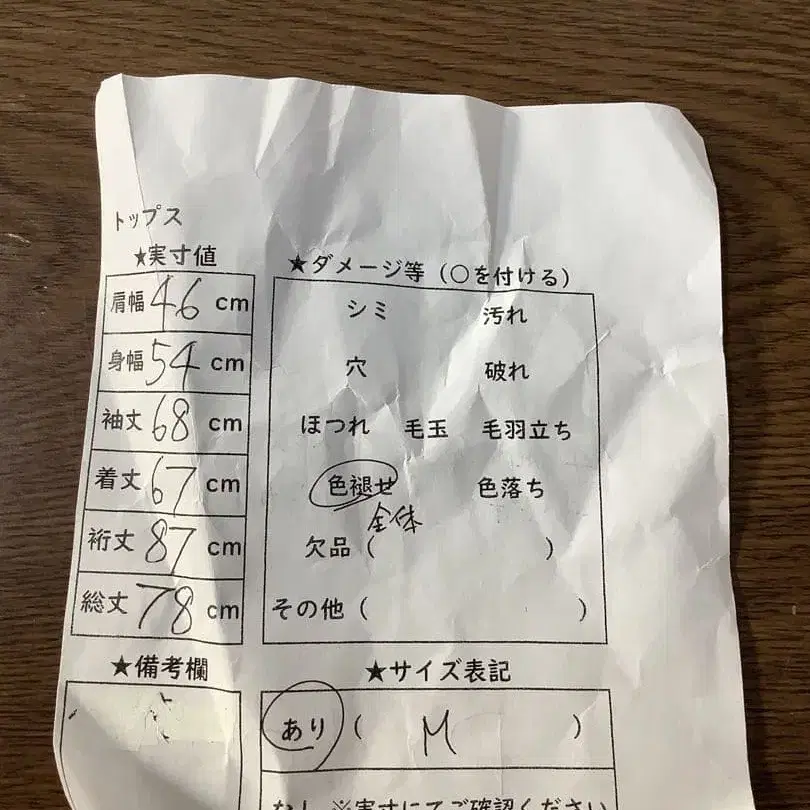 トップス
★実寸値
肩幅 46 cm
身幅 54 cm
袖丈 68 cm
着丈 67 cm
裄丈 87 cm
総丈 78 cm
★備考欄
★ダメージ等（○を付ける）
シミ 汚れ
穴 破れ
ほつれ 毛玉 毛羽立ち
色褪せ 色落ち
全体
欠品（ ）
その他（ ）
★サイズ表記
あり（ M ）
なし ※実寸にてご確認ください